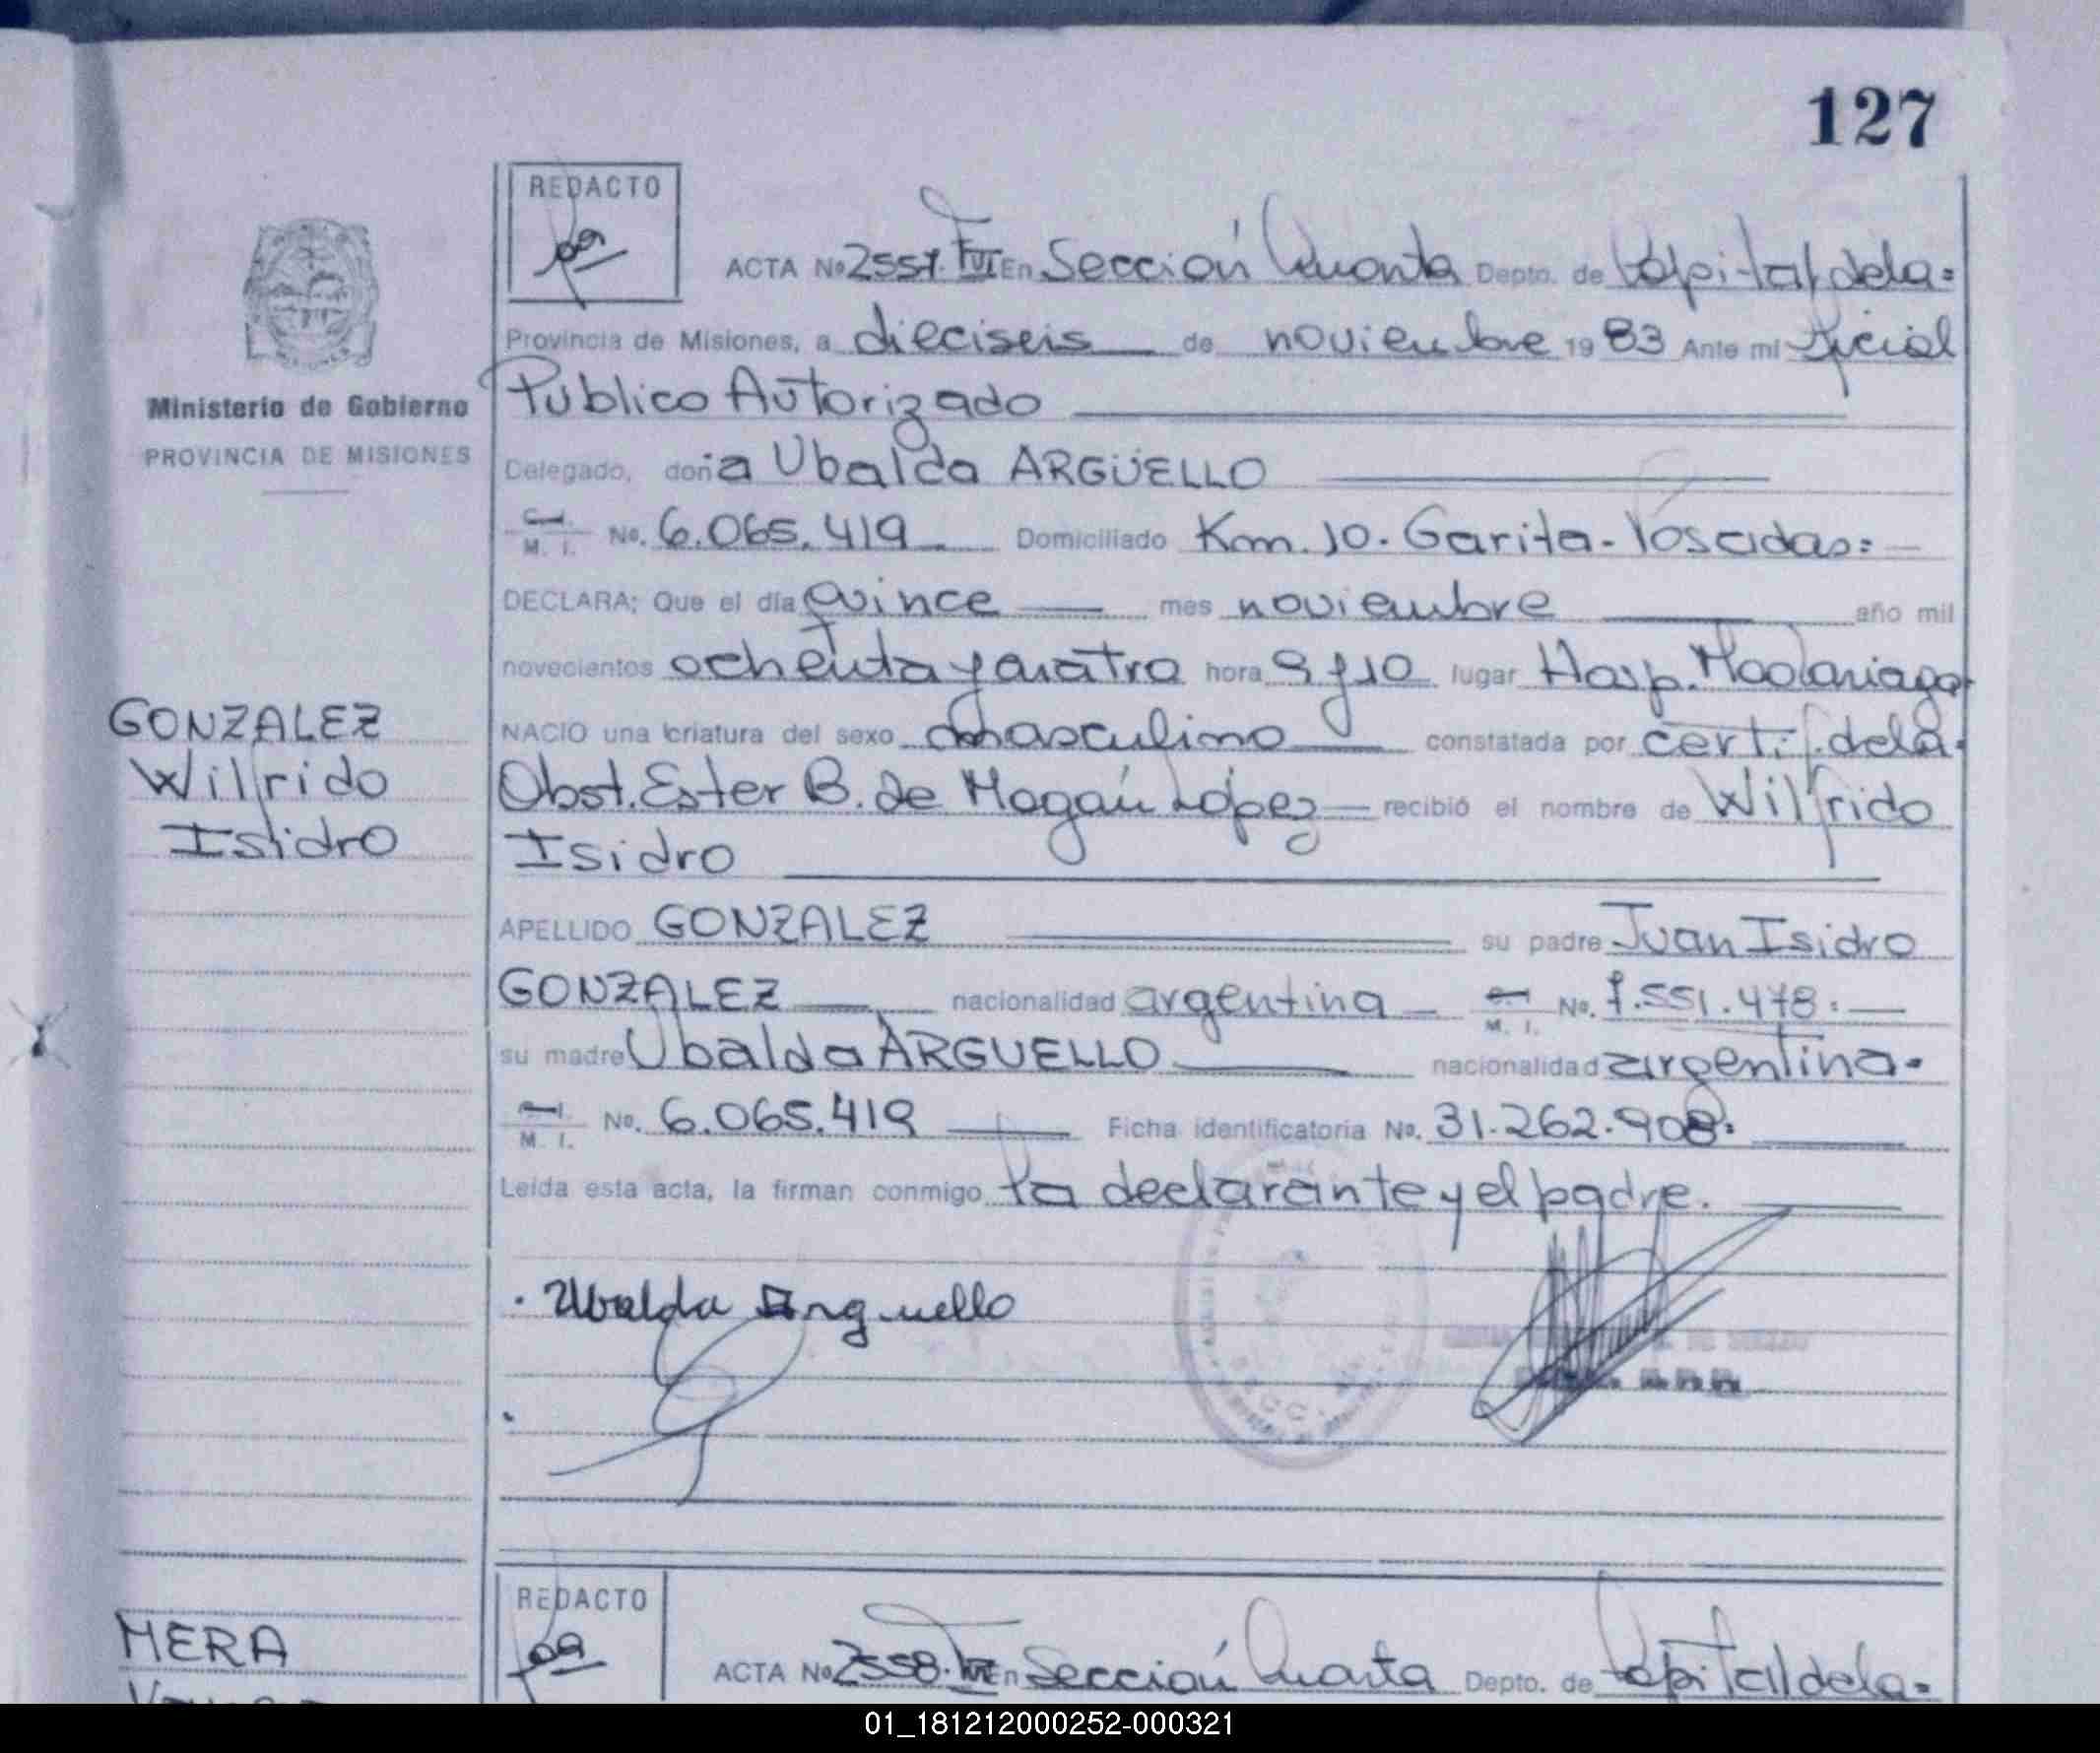 127
REDACTO
ACTA No 2557. T VII En Sección Cuarta Depto. de Capital de la=
Provincia de Misiones, a dieciseis de noviembre 1983 Ante mi Oficial
Público Autorizado
Ministerio de Gobierno
PROVINCIA DE MISIONES
Delegado, doña Ubalda ARGÜELLO
M. I. No. 6.065.419 Domiciliado Km. 10. Garita- Posadas=
DECLARA; Que el día quince mes noviembre año mil
novecientos ochenta y cuatro hora 9 y 10 lugar Hosp. Madariaga
GONZALEZ
Wilfrido
Isidro
NACIO una criatura del sexo masculino constatada por certif. de la
Obst. Ester B. de Magán López recibió el nombre de Wilfrido
Isidro
APELLIDO GONZALEZ su padre Juan Isidro
GONZALEZ nacionalidad argentina M. I. No. 7.551.478.
su madre Ubalda ARGUELLO nacionalidad argentina.
M. I. No. 6.065.419 Ficha identificatoria No. 31.262.908.
Leida esta acta, la firman conmigo la declarante y el padre.
Ubalda Arguello
MERA
REDACTO
ACTA No 2558. En Sección Cuarta Depto. de Capital de la=
01_181212000252-000321